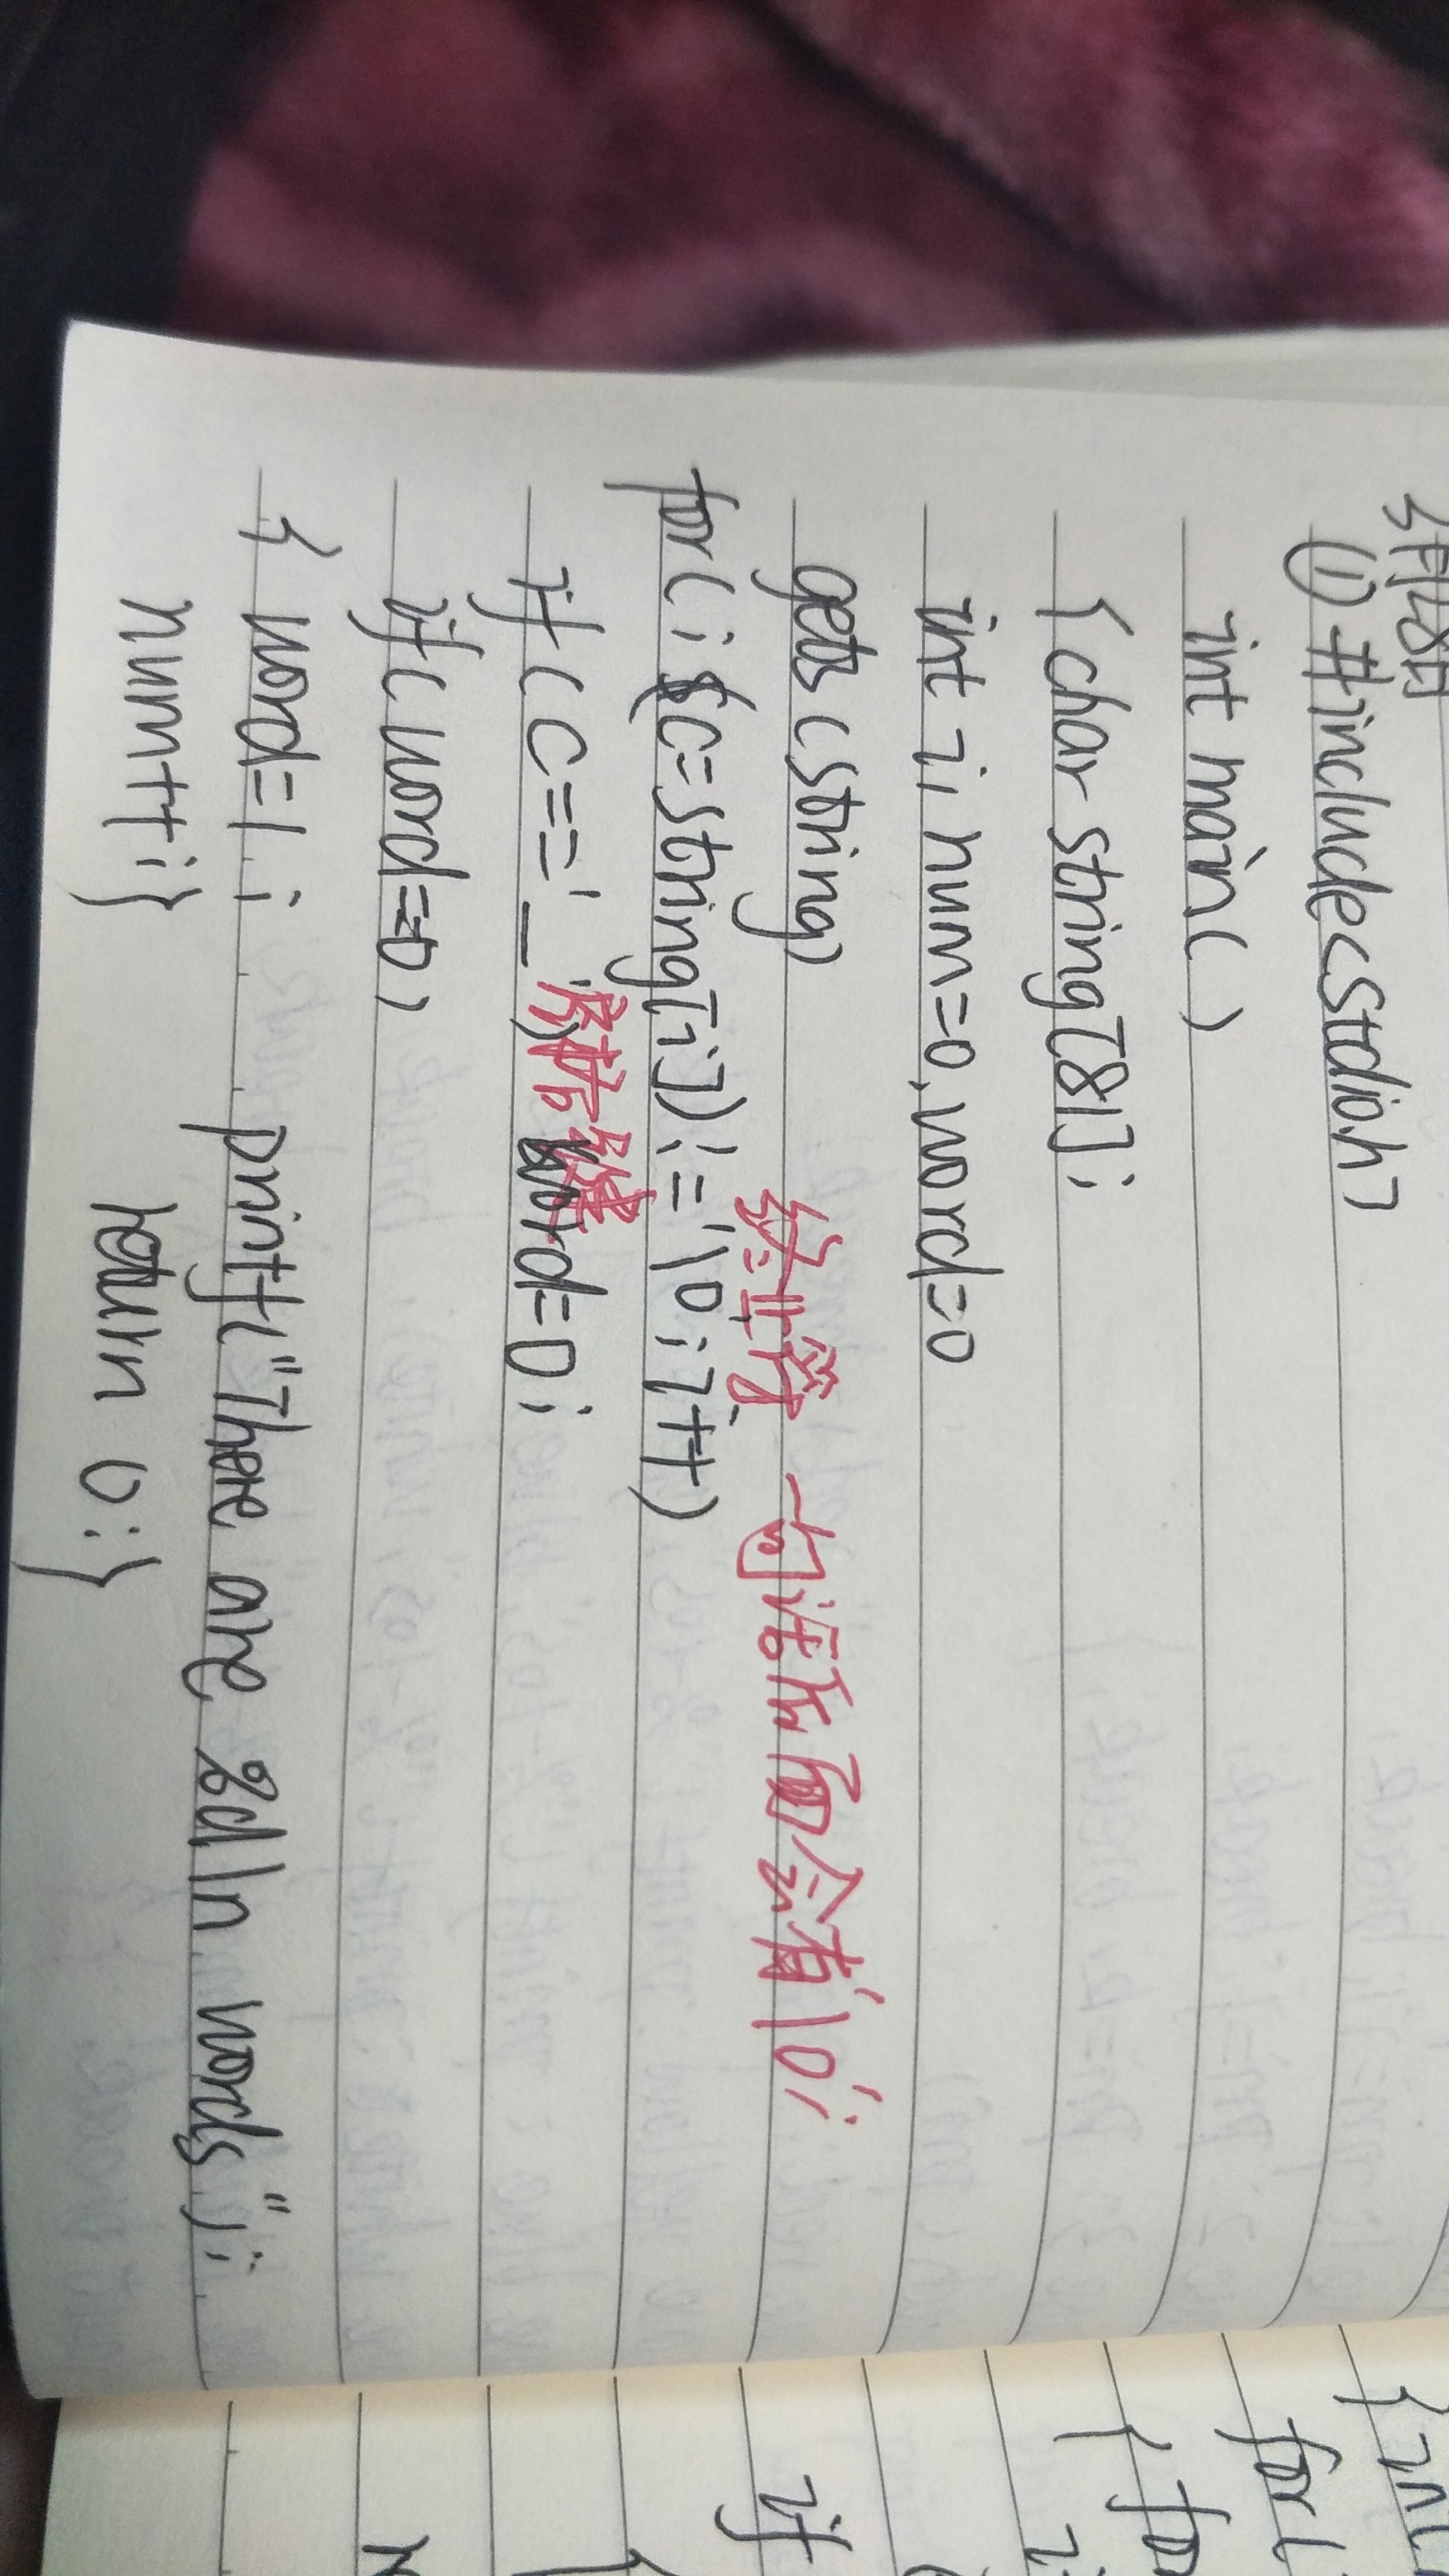 3月28日
① #include<stdio.h>
int main( )
{char string[81];
int i, num=0,word=0
gets(string)
终止符 一句话后面会有'\0';
for(i;(c=string[i])!='\0';i++)
if(c==' ') 空格键 word=0;
if(word==0)
{ word=1;
num++;}
printf("There are %d\n words");
return 0;}
{int
for(
for
{
if
{